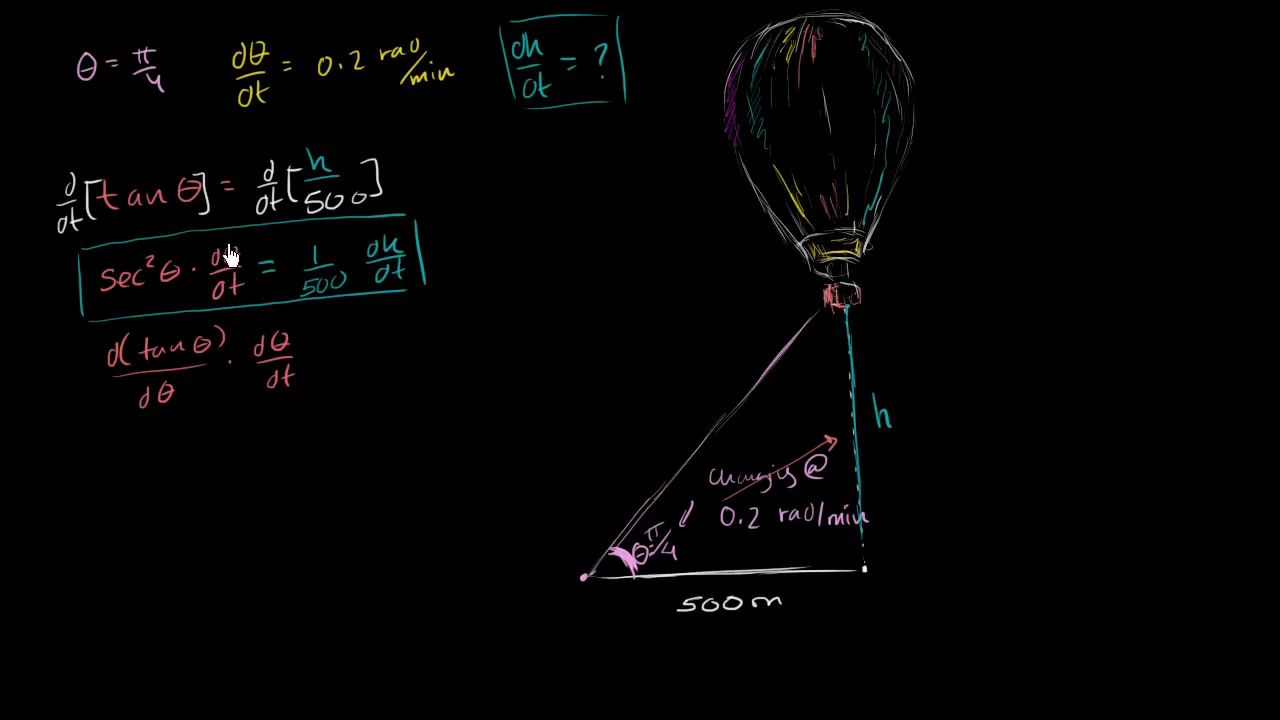 θ = π/4
dθ/dt = 0.2 rad/min
dh/dt = ?
d/dt[tan θ] = d/dt[h/500]
sec²θ · dθ/dt = 1/500 dh/dt
d(tan θ)/dθ · dθ/dt
h
changing @
0.2 rad/min
θ=π/4
500 m